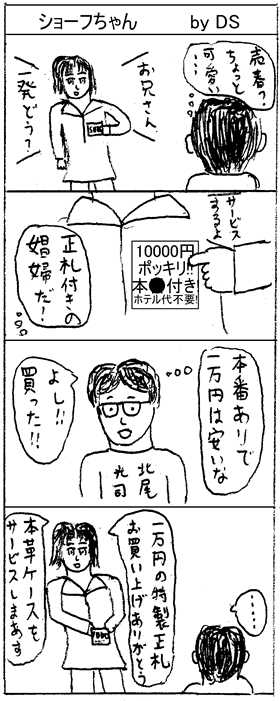 ショーフちゃん by DS
売春?
ちょっと
可愛い
……
お兄さん
一発どう?
サービス
するよ
10000円
ポッキリ!!
本●付き
ホテル代不要!
正札付きの
娼婦だ!
本番ありで
一万円は安いな
よし!!
買った!!
北尾
光司
一万円の特製正札
お買い上げありがとう
本革ケースを
サービスしまあす
……